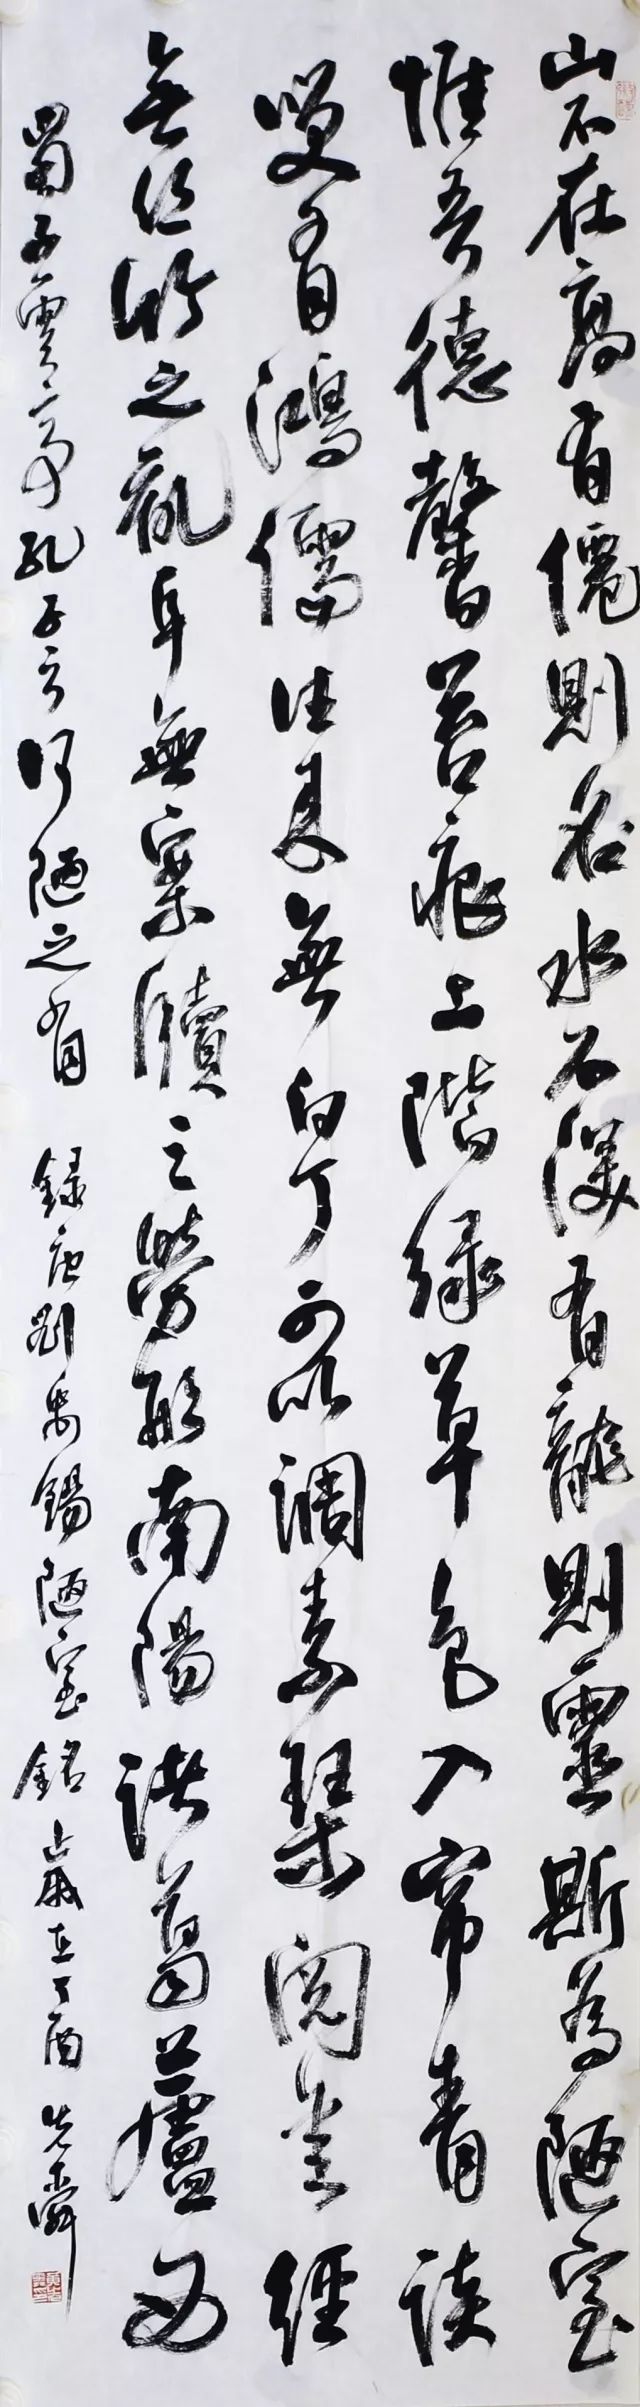 山不在高有僊則名水不深有龍則靈斯為陋室
惟吾德馨苔痕上階綠草色入帘青談
笑有鴻儒往來無白丁可以調素琴閱金經
無絲竹之亂耳無案牘之勞形南陽諸葛廬西
蜀子雲亭孔子云何陋之有 錄唐劉禹錫陋室銘 歲在丁酉 先